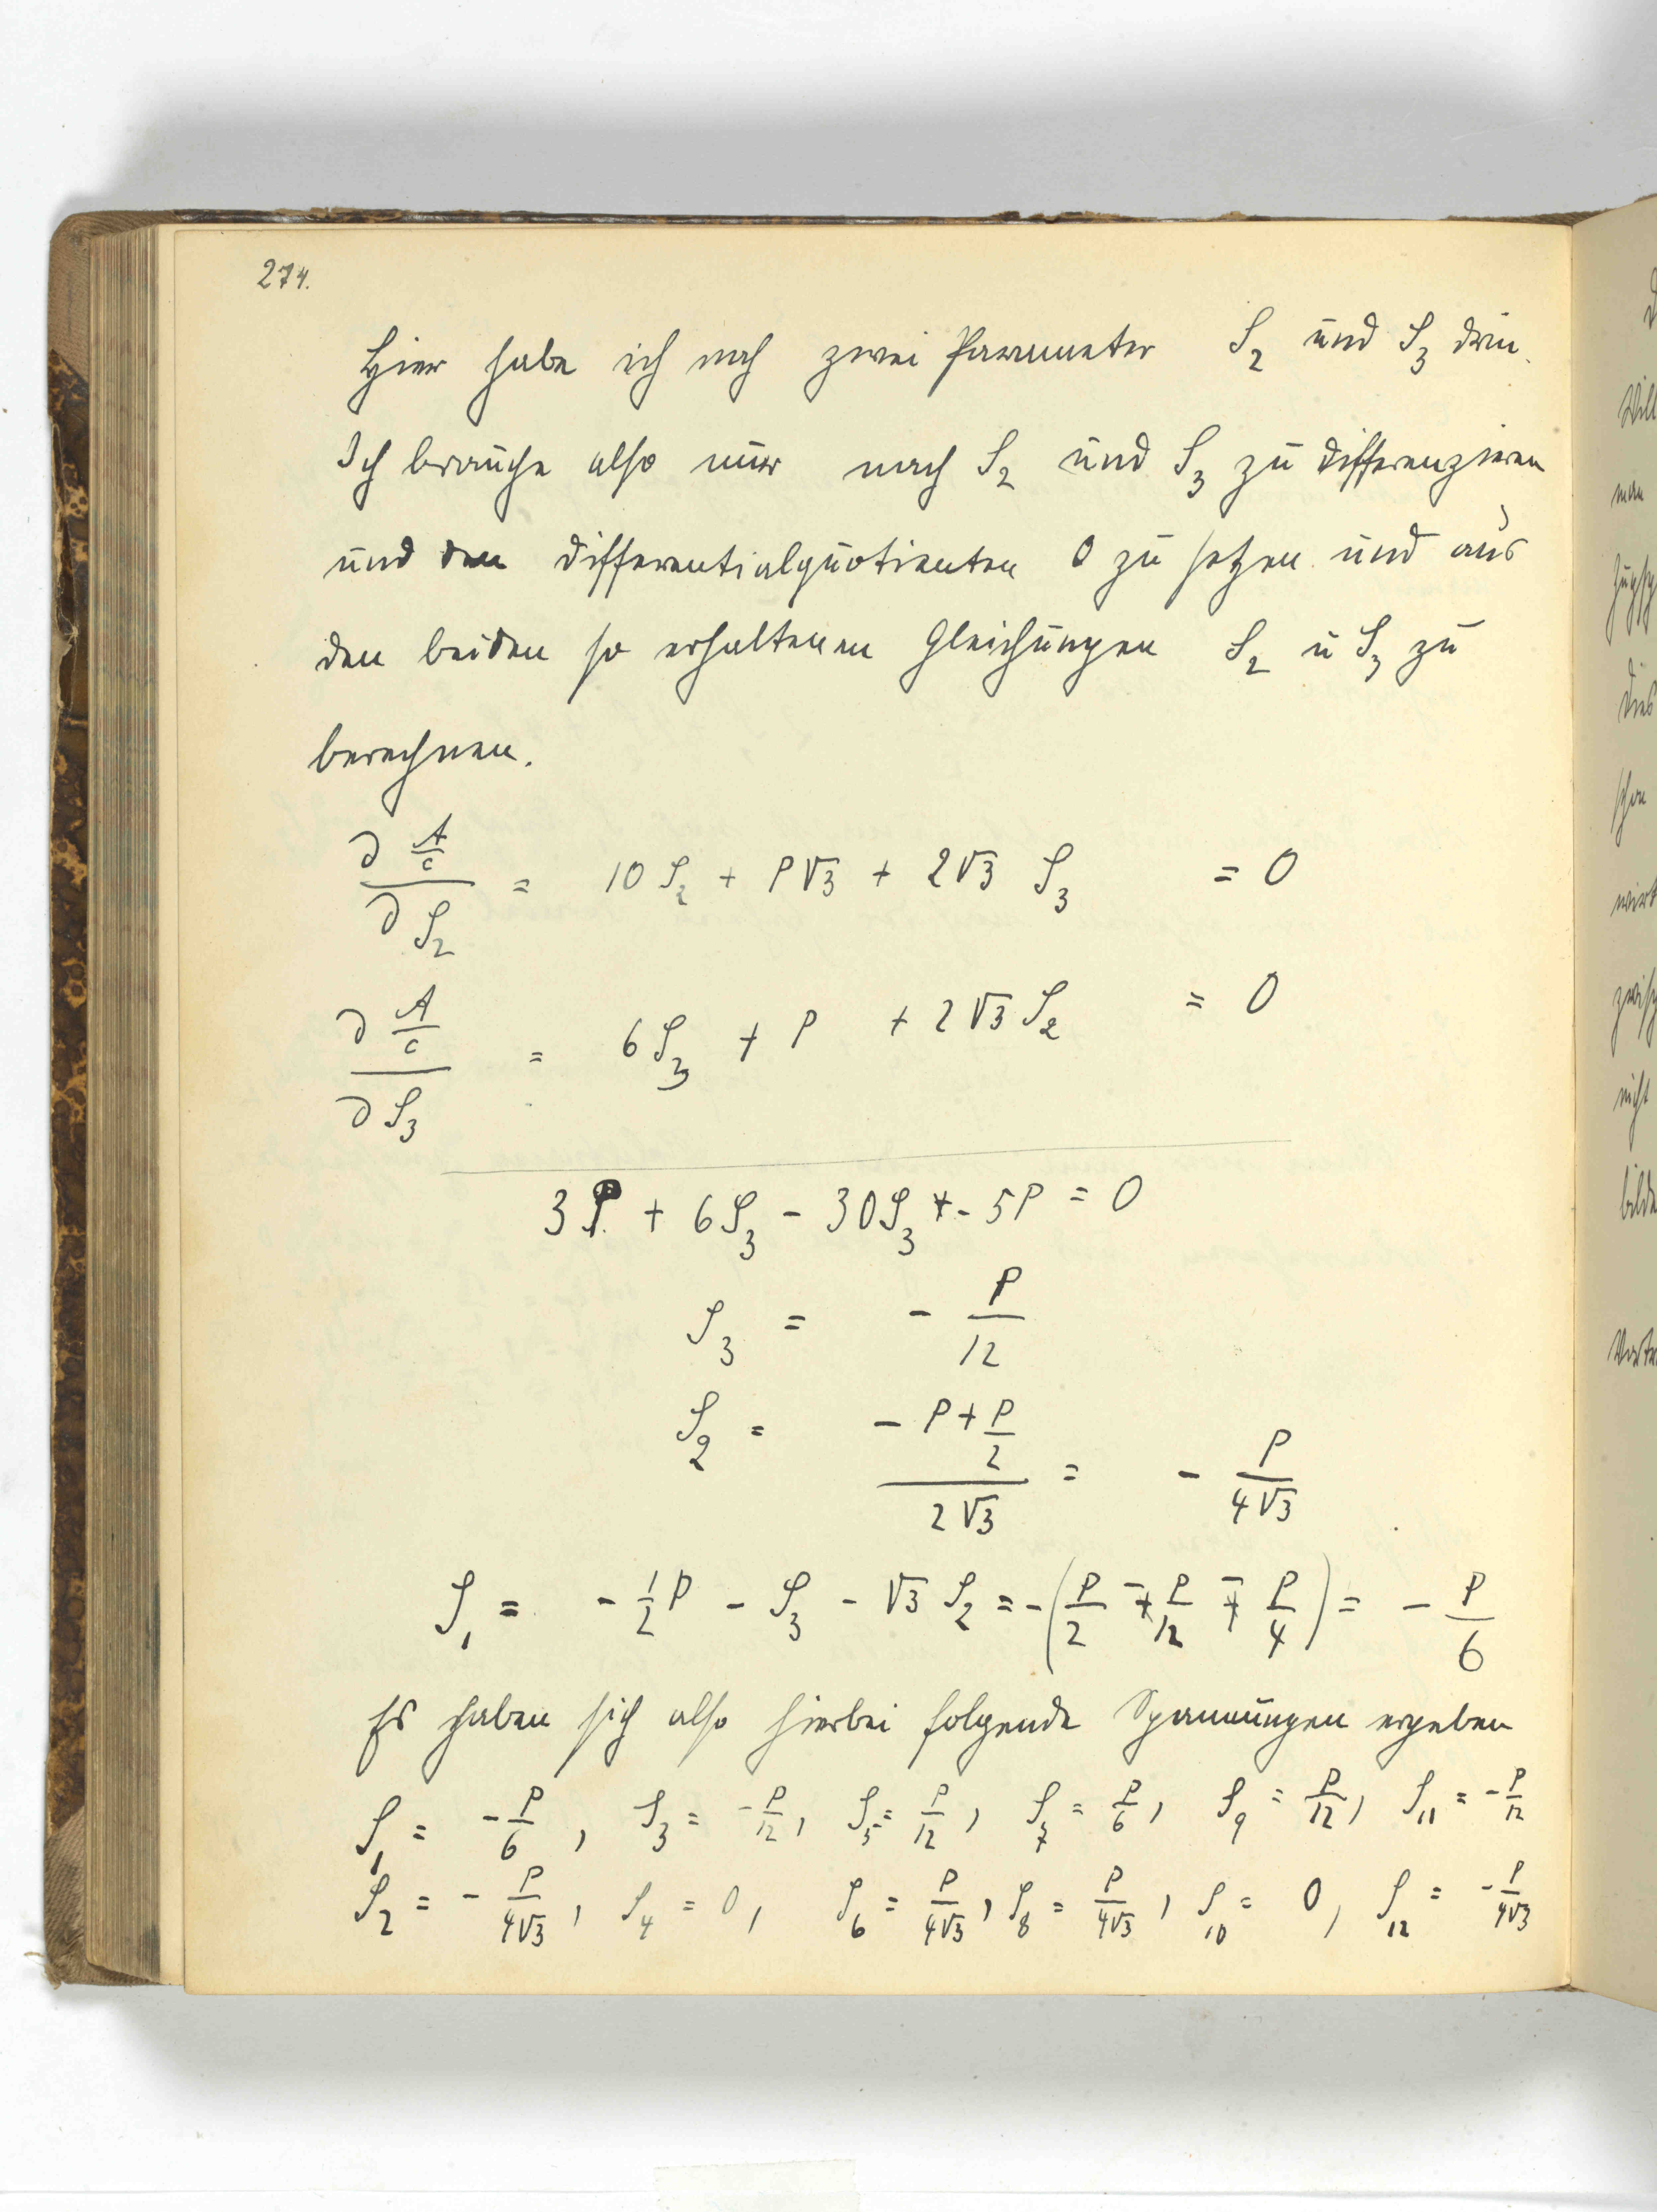 274.
Hier habe ich noch zwei Parameter S₂ und S₃ drin.
Ich brauche also nur nach S₂ und S₃ zu differenzieren
und den Differentialquotienten 0 zu setzen und aus
den beiden so erhaltenen Gleichungen S₂ u S₃ zu
berechnen.
∂ A/c / ∂ S₂ = 10 S₂ + P√3 + 2√3 S₃ = 0
∂ A/c / ∂ S₃ = 6 S₃ + P + 2√3 S₂ = 0
3P + 6S₃ - 30S₃ - 5P = 0
S₃ = - P/12
S₂ = (- P + P/2) / 2√3 = - P/4√3
S₁ = - 1/2 P - S₃ - √3 S₂ = -(P/2 - P/12 - P/4) = - P/6
Es haben sich also hierbei folgende Spannungen ergeben
S₁ = - P/6, S₃ = - P/12, S₅ = P/12, S₇ = P/6, S₉ = P/12, S₁₁ = - P/12
S₂ = - P/4√3, S₄ = 0, S₆ = P/4√3, S₈ = P/4√3, S₁₀ = 0, S₁₂ = - P/4√3
Will
man
Dies
schon
wirk
nicht
bilde